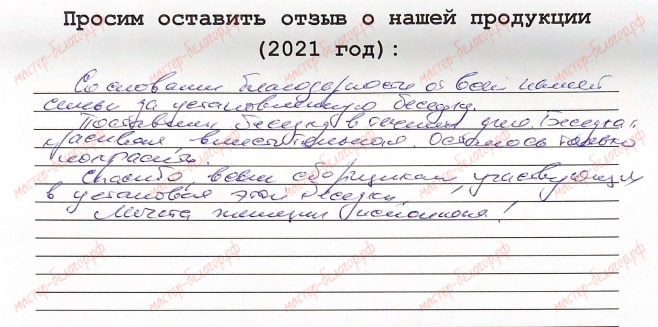 Просим оставить отзыв о нашей продукции
(2021 год):
Со словами благодарности от всей нашей
семьи за установленную беседку.
Поставили беседку в течении дня. Беседка
красивая, вместительная. Осталось только
покрасить.
Спасибо всем сборщикам, участвующих
в установке этой беседки.
Мечта женщины исполнена!
мастер-белогор.рф